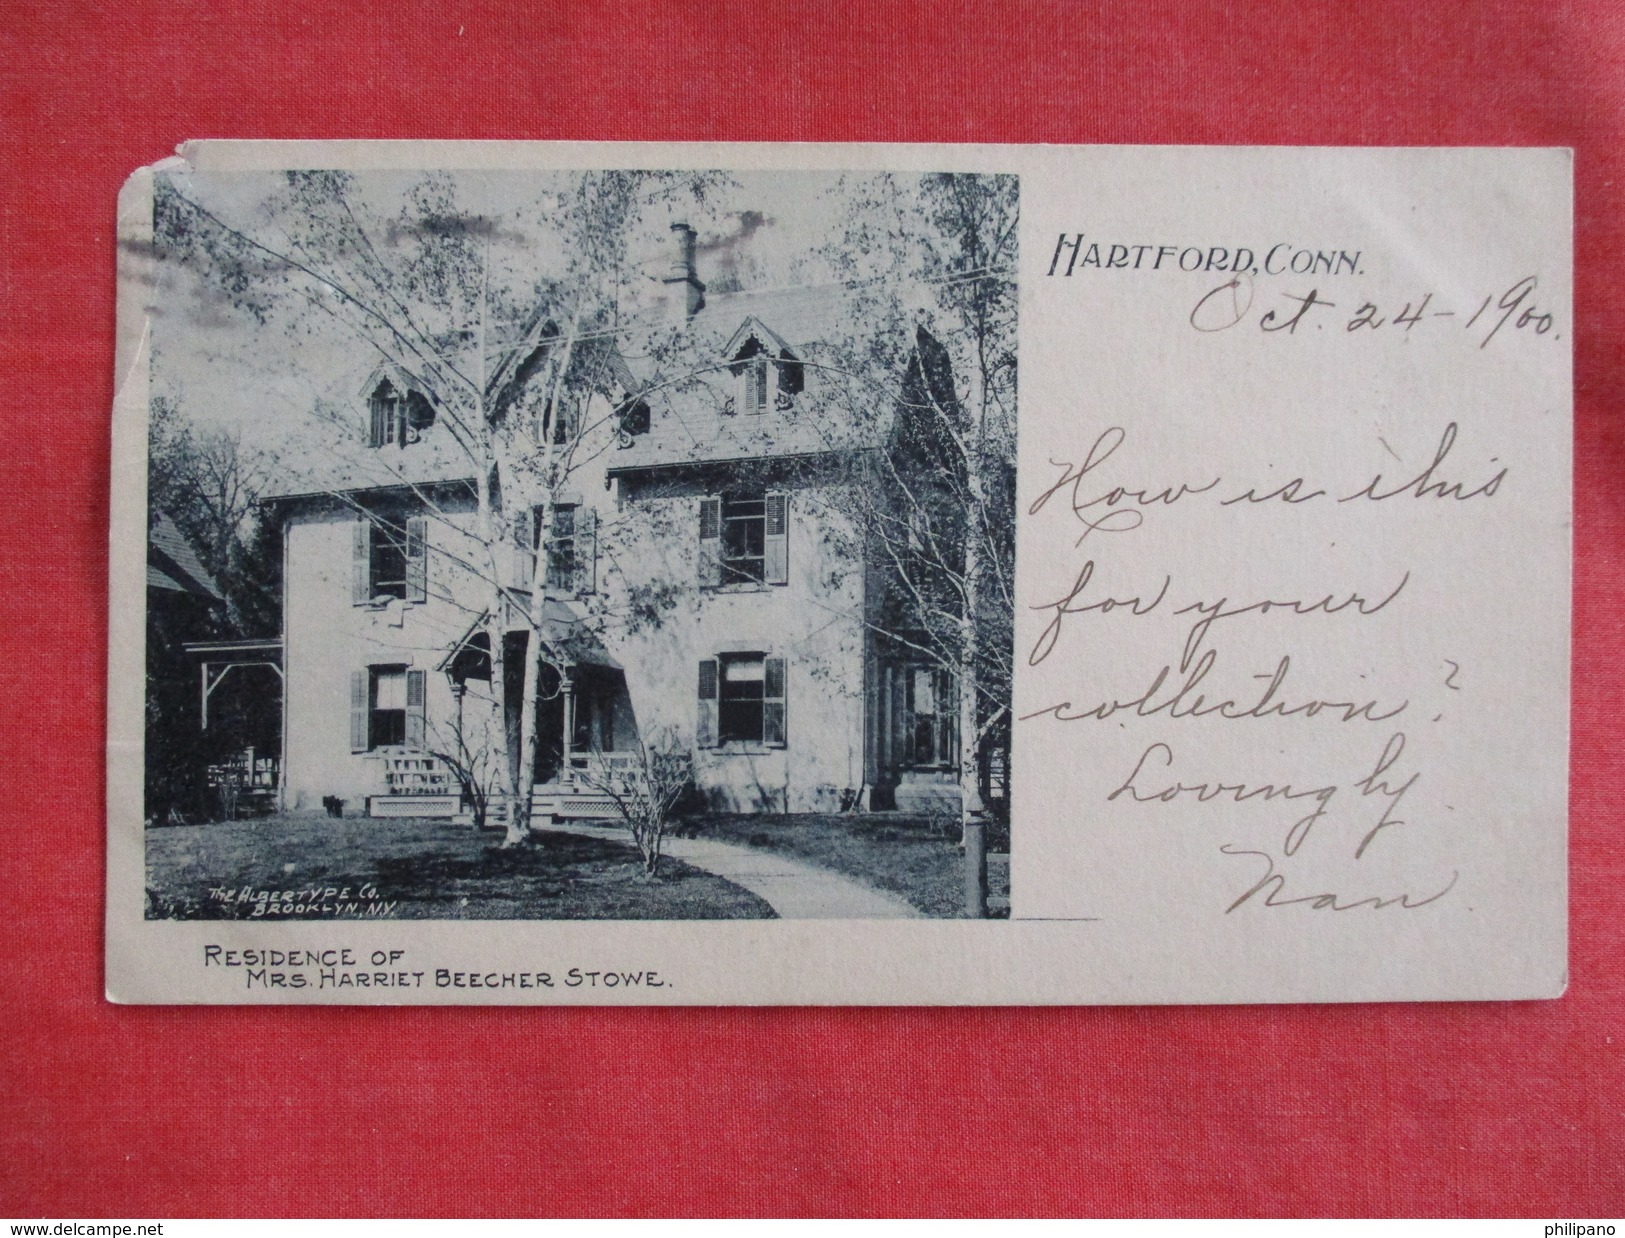 HARTFORD, CONN.
Oct. 24-1900.
How is this
for your
collection?
Lovingly
Nan.
THE ALBERTYPE CO.
BROOKLYN, N.Y.
RESIDENCE OF
MRS. HARRIET BEECHER STOWE.
www.delcampe.net
philipano